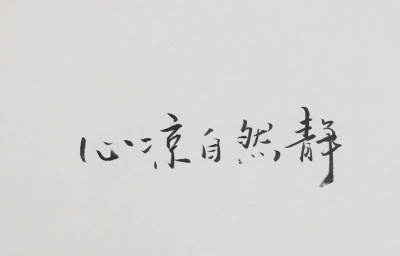 心凉自然静